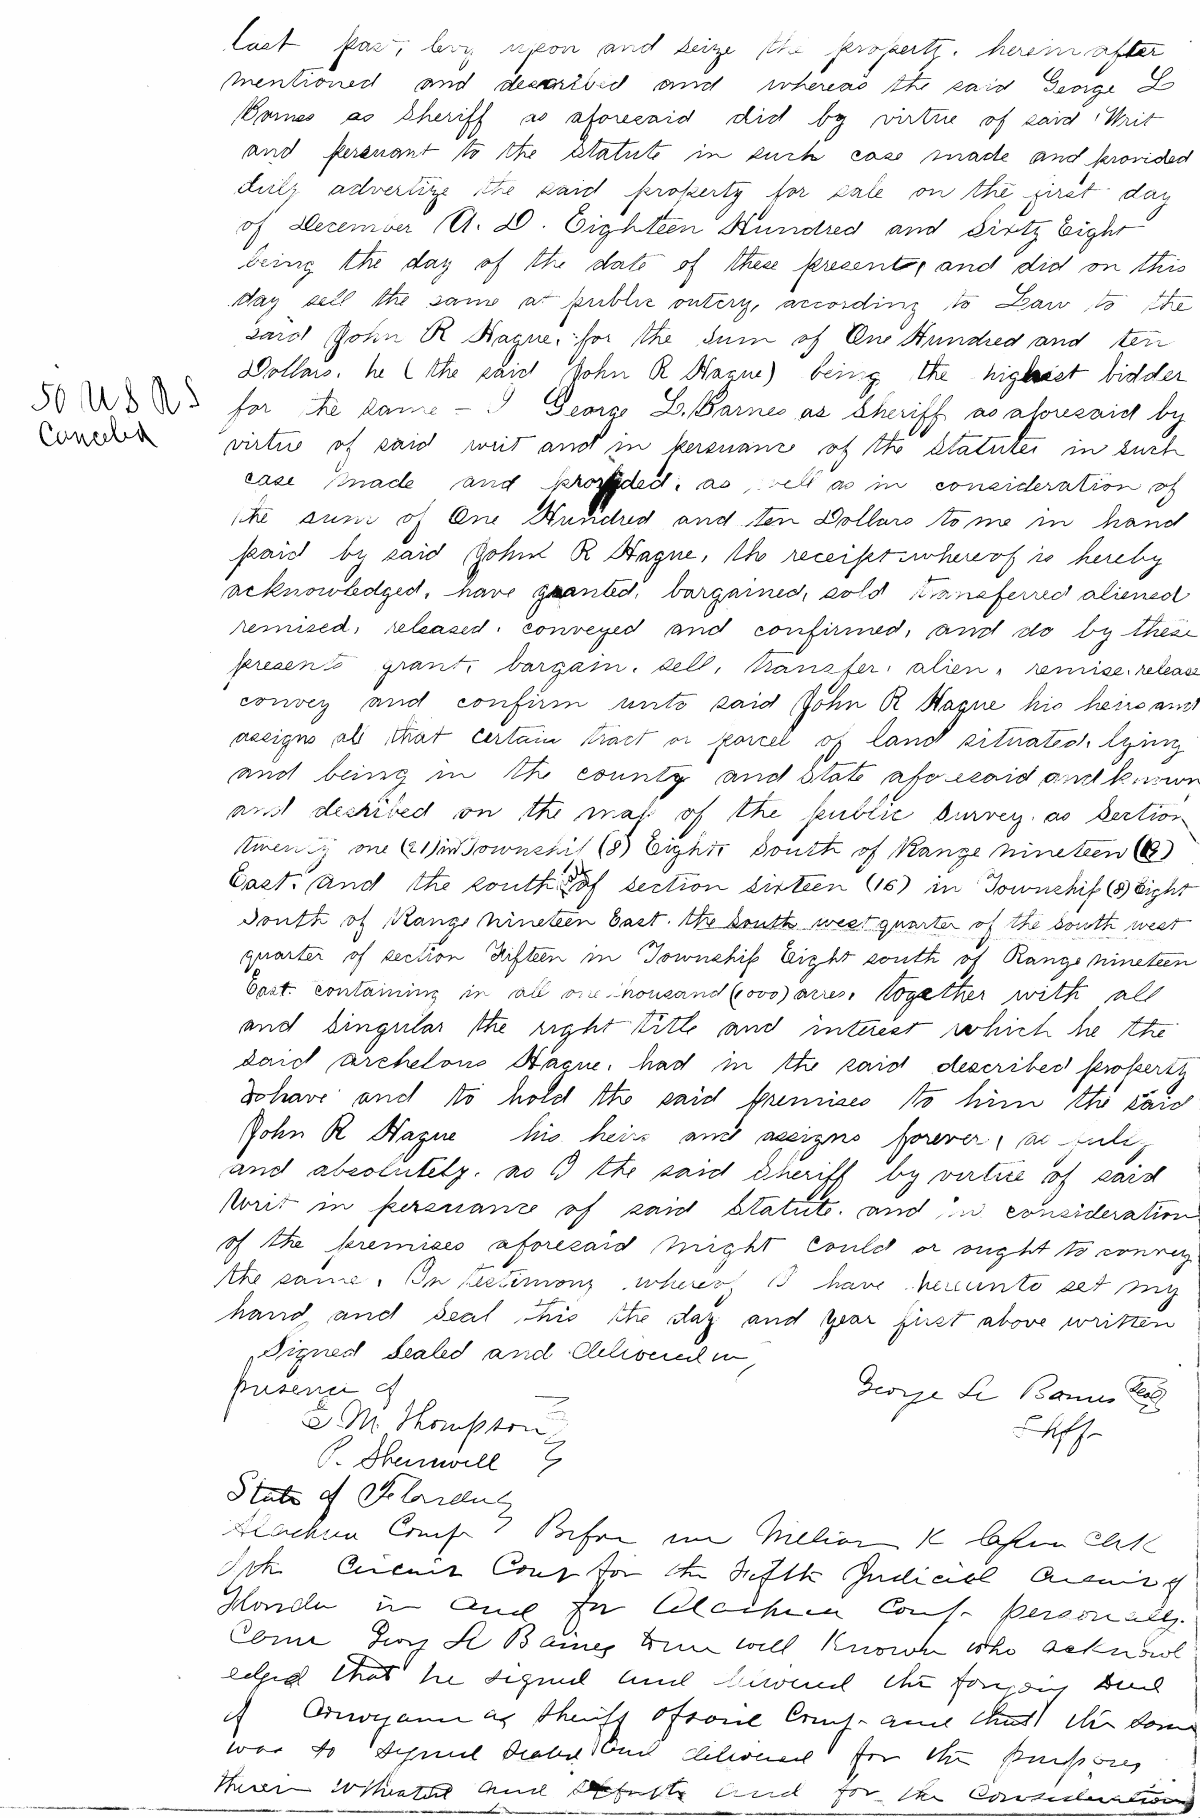 last past, levy upon and seize the property. herein after
mentioned and described and whereas the said George L
Barnes as Sheriff as aforesaid did by virtue of said Writ
and persuant to the Statute in such case made and provided
duly advertize the said property for sale on the first day
of December A. D. Eighteen Hundred and Sixty Eight
being the day of the date of these presents, and did on this
day sell the same at public outcry, according to Law to the
said John R Hague, for the sum of One Hundred and ten
Dollars. he (the said John R Hague) being the highest bidder
50 U S R S
Canceled
for the same - I George L. Barnes as Sheriff as aforesaid by
virtue of said writ and in persuance of the Statutes in such
case made and provided. as well as in consideration of
the sum of One Hundred and ten Dollars to me in hand
paid by said John R Hague, the receipt whereof is hereby
acknowledged, have granted, bargained, sold transferred aliened
remised, released, conveyed and confirmed, and do by these
presents grant, bargain, sell, transfer, alien, remise, release
convey and confirm unto said John R Hague his heirs and
assigns all that certain tract or parcel of land situated, lying
and being in the county and State aforesaid and known
and decribed on the map of the public survey. as Section
twenty one (21) in Township (8) Eight South of Range nineteen (19)
East. and the south of section sixteen (16) in Township (8) Eight
South of Range nineteen East. the south west quarter of the south west
quarter of section Fifteen in Township Eight south of Range nineteen
East. containing in all one thousand (1000) acres, together with all
and singular the right title and interest which he the
said archelous Hague. had in the said described property
To have and to hold the said premises to him the said
John R Hague his heirs and assigns forever, as fully
and absolutely. as I the said Sheriff by virtue of said
Writ in persuance of said Statute. and in consideration
of the premises aforesaid might could or ought to convey
the same. In testimony whereof I have hereunto set my
hand and seal this the day and year first above written
Signed Sealed and delivered in
presence of
George L Barnes Seal
Shff
E. M. Thompson
P. Shemwell
State of Florida
Alachua County Before me William K Clerk
of the Circuit Court for the Fifth Judicial Circuit of
Florida in and for Alachua County personally
Came George L Barnes to me well Known who acknowl
edged that he signed and delivered the forgoing Deed
of Conveyance as Sheriff of said County and that the same
was so signed sealed and delivered for the purposes
therein and and for the Consideration